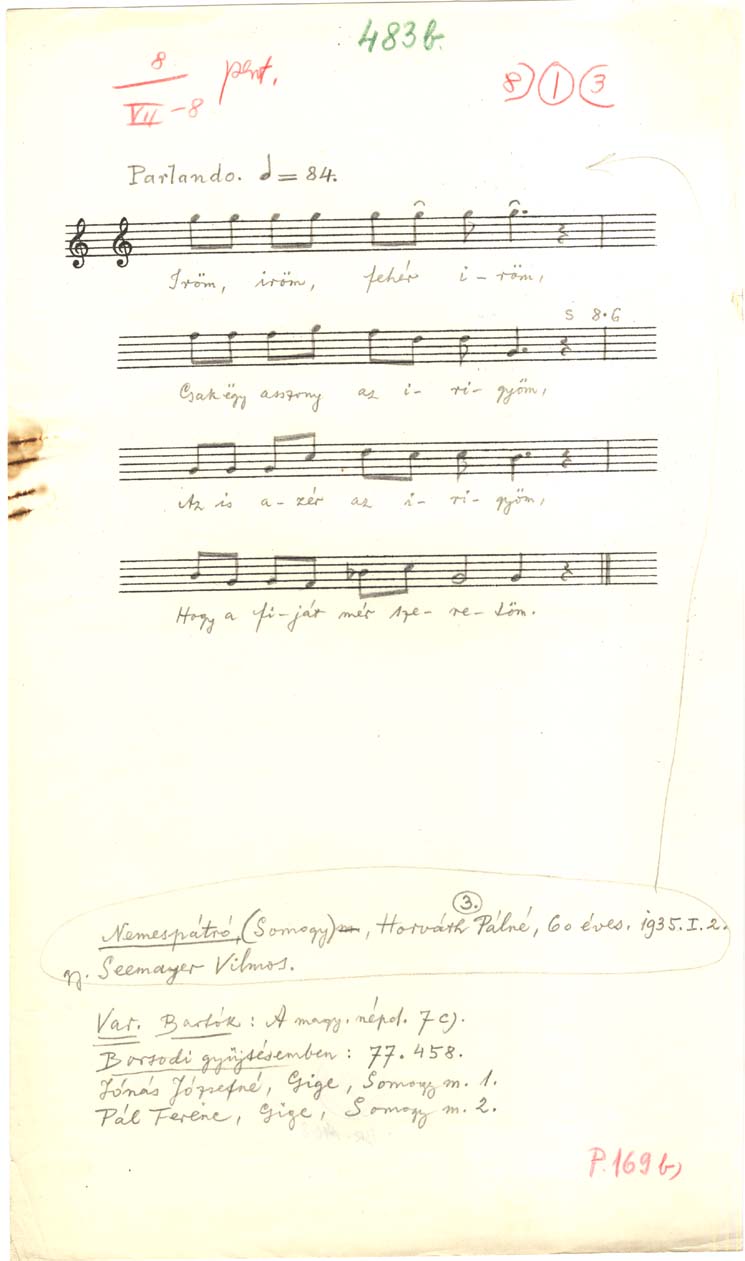 483b.
8
VII-8 pent.
8) 1 3
Parlando. = 84.
Iröm, iröm, fehér i-röm,
s 8·6
Csak ëgy asszony az i-ri-gyöm,
Az is a-zér az i-ri-gyöm,
Hogy a fi-ját mér sze-re-töm.
3.
Nemespátró, (Somogy), Horváth Pálné, 60 éves. 1935.I.2.
Gy. Seemayer Vilmos.
Var. Bartók: A magy. népd. 7c).
Borsodi gyüjtésemben: 77. 458.
Jónás Józsefné, Gige, Somogy m. 1.
Pál Ferenc, Gige, Somogy m. 2.
P. 169 b)